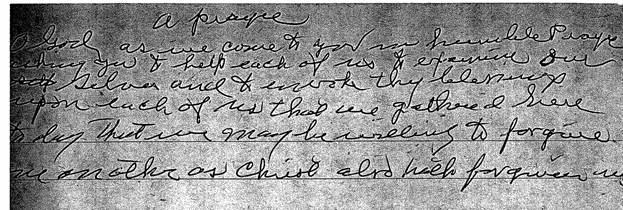 a prayre
O God as we come to you in humble Praye
asking you to help each of us to examine Our
selves and to invok thy blessings
upon each of us that are gathered here
to day that we may be willing to forgive
one another as Christ also hath forgiven us